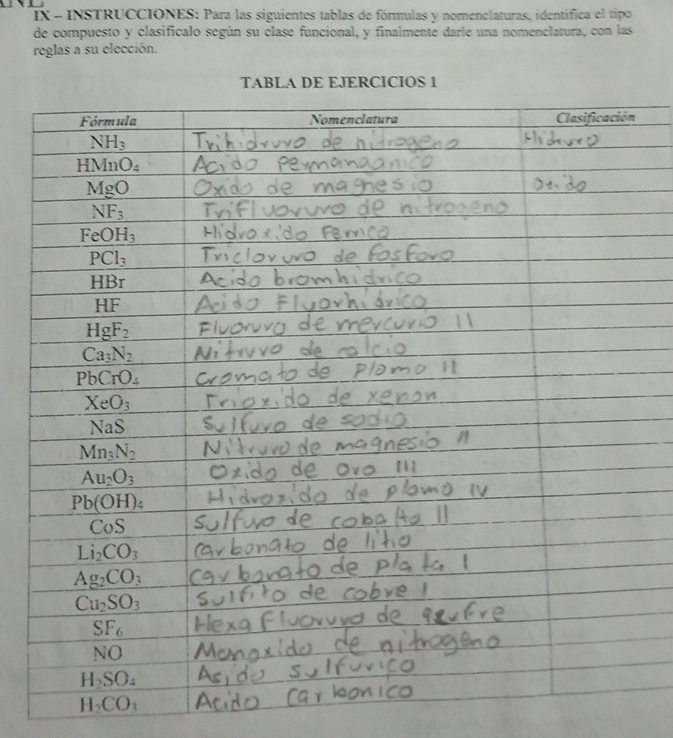 IX – INSTRUCCIONES: Para las siguientes tablas de fórmulas y nomenclaturas, identifica el tipo
de compuesto y clasifícalo según su clase funcional, y finalmente darle una nomenclatura, con las
reglas a su elección.
TABLA DE EJERCICIOS 1
Fórmula Nomenclatura Clasificación
NH₃ Trihidruro de nitrogeno Hidruro
HMnO₄ Acido permanganico
MgO Oxido de magnesio Oxido
NF₃ Trifluoruro de nitrogeno
FeOH₃ Hidroxido Ferrico
PCl₃ Tricloruro de fosforo
HBr Acido bromhidrico
HF Acido Fluorhidrico
HgF₂ Fluoruro de mercurio II
Ca₃N₂ Nitruro de calcio
PbCrO₄ Cromato de plomo II
XeO₃ Trioxido de xenon
NaS Sulfuro de sodio
Mn₃N₂ Nitruro de magnesio II
Au₂O₃ Oxido de oro III
Pb(OH)₄ Hidroxido de plomo IV
CoS Sulfuro de cobalto II
Li₂CO₃ Carbonato de litio
Ag₂CO₃ Carbonato de plata I
Cu₂SO₃ Sulfito de cobre I
SF₆ Hexa Fluoruro de azufre
NO Monoxido de nitrogeno
H₂SO₄ Acido sulfurico
H₂CO₃ Acido carbonico